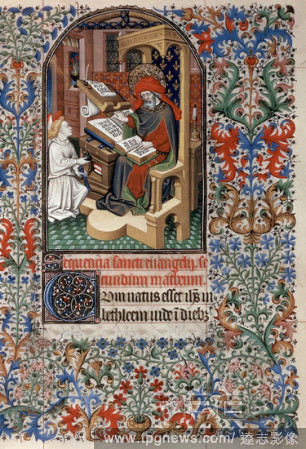 Sequencia sancti euangelij. se
cundum matheum.
Cum natus esset ihs in
bethleem iude i dieb;
www.tpgnews.com/ 達志影像